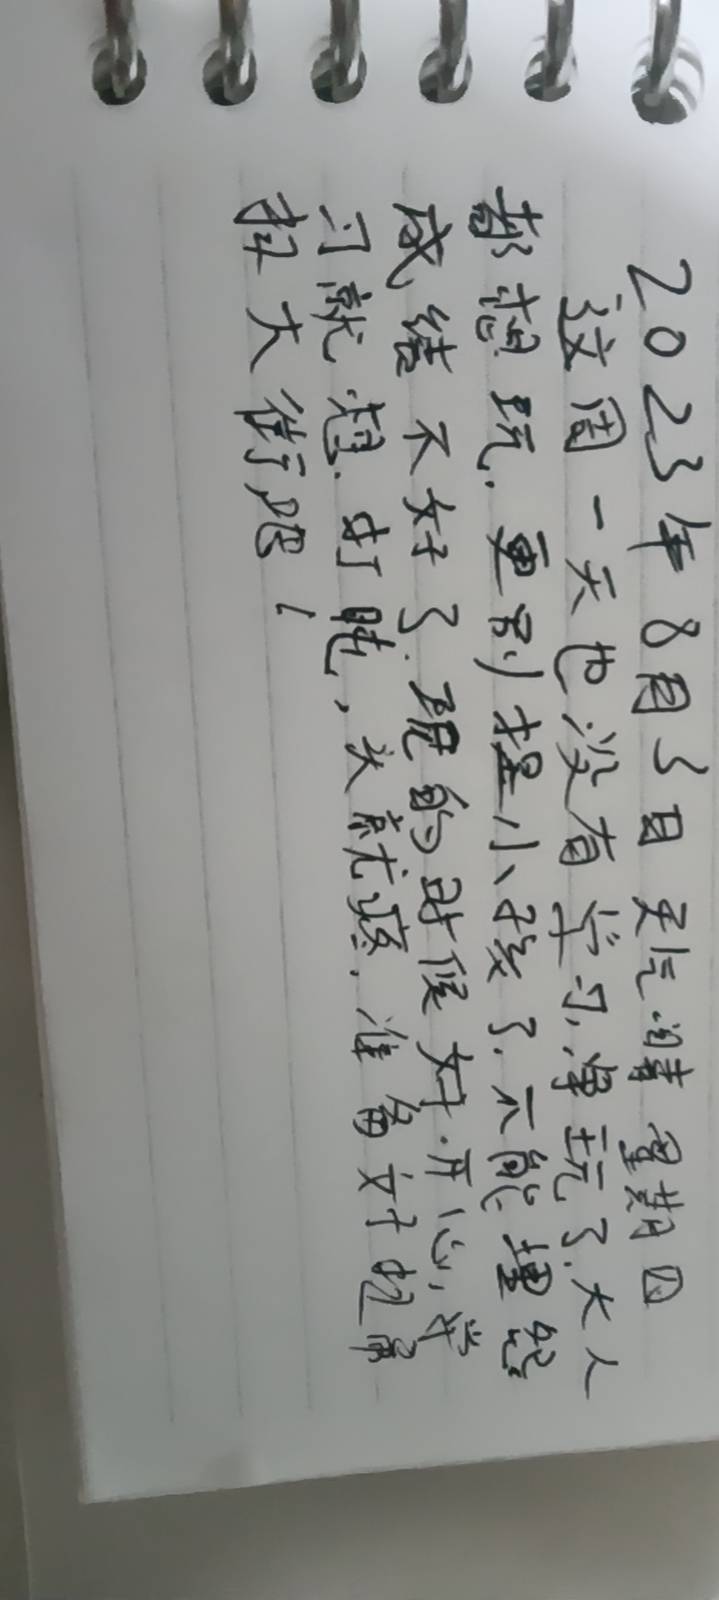 2023年8月3日 天气晴 星期四
这周一天也没有学习,净玩了.大人
都想玩.更别提小孩了.不能埋怨
成绩不好了.玩的时候好开心,学
习就想.打盹,头就疼.准备好
扫大街吧!